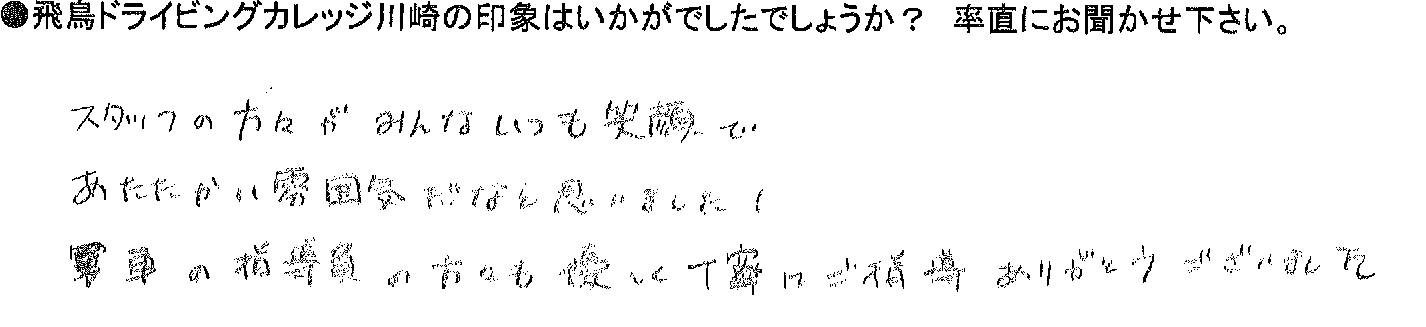 ●飛鳥ドライビングカレッジ川崎の印象はいかがでしたでしょうか？ 率直にお聞かせ下さい。
スタッフの方々がみんないつも笑顔で
あたたかい雰囲気だなと思いました！
車の指導員の方々も優しく丁寧にご指導ありがとうございました